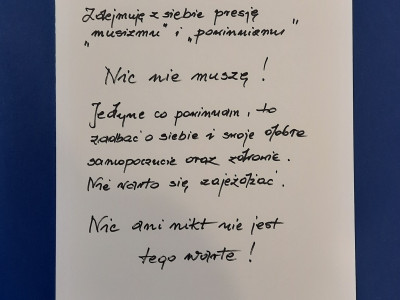 Zdejmuję z siebie presję
"musizmu" i "powinnianu"
Nic nie muszę!
Jedyne co powinnam, to
zadbać o siebie i swoje dobre
samopoczucie oraz zdrowie.
Nie warto się zajeżdżać.
Nic ani nikt nie jest
tego warte!